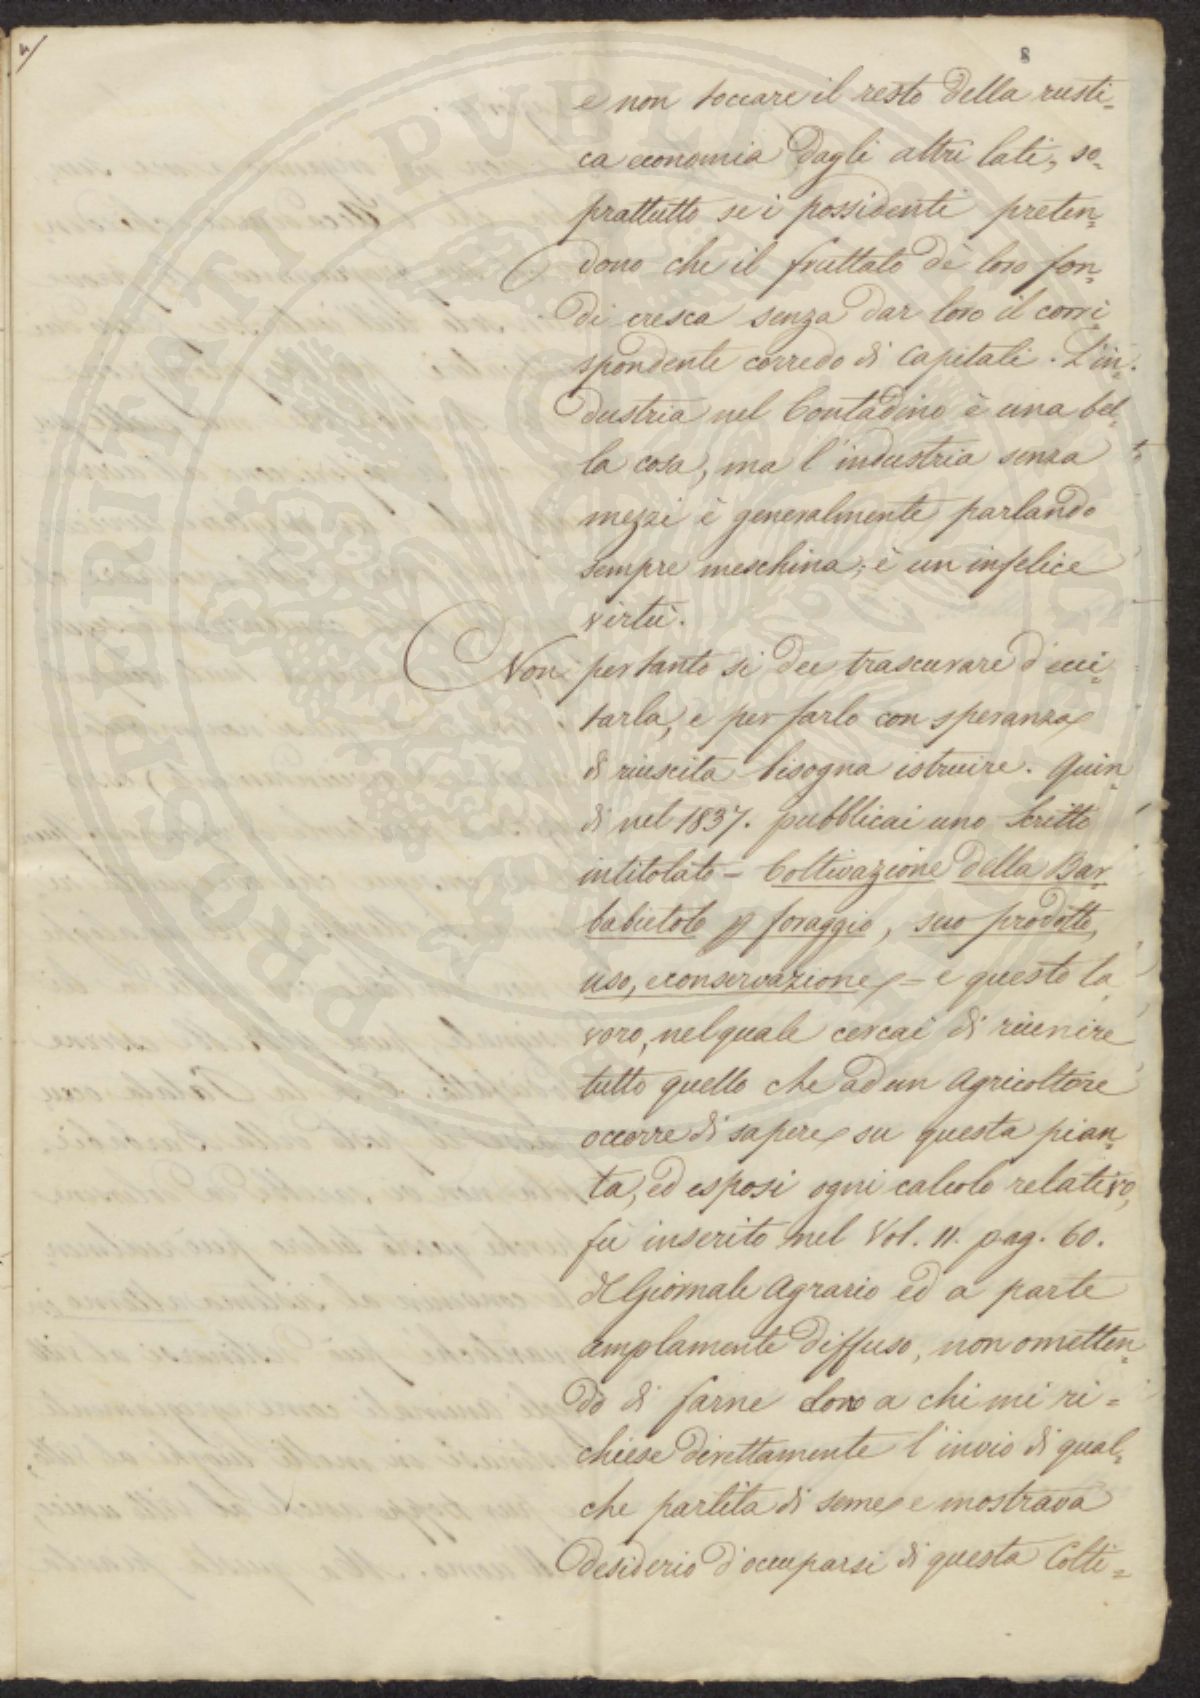 4/
8
e non toccare il resto della rusti=
ca economia dagli altri lati, so=
prattutto se i possidenti preten=
dono che il fruttato de' loro fon=
di cresca senza dar loro il corri=
spondente corredo di Capitali. L'in=
dustria nel Contadino è una bel=
la cosa, ma l'industria senza
mezzi è generalmente parlando
sempre meschina; è un infelice
virtù.
Non pertanto si dee trascurare d'ecci=
tarla, e per farlo con speranza
di riuscita bisogna istruire. Quin
di nel 1837. pubblicai uno Scritto
intitolato = Coltivazione della Bar=
babietola p foraggio, suo prodotto,
uso, e conservazione = e questo la
voro, nel quale cercai di riunire
tutto quello che ad un Agricoltore
occorre di sapere su questa pian=
ta, ed esposi ogni calcolo relativo,
fù inserito nel Vol. 11. pag. 60.
del Giornale Agrario ed a parte
amplamente diffuso, non ometten=
do di farne dono a chi mi ri=
chiese direttamente l'invio di qual=
che partita di seme e mostrava
desiderio d'occuparsi di questa Colti=
PROSPERITATI PUBLICAE